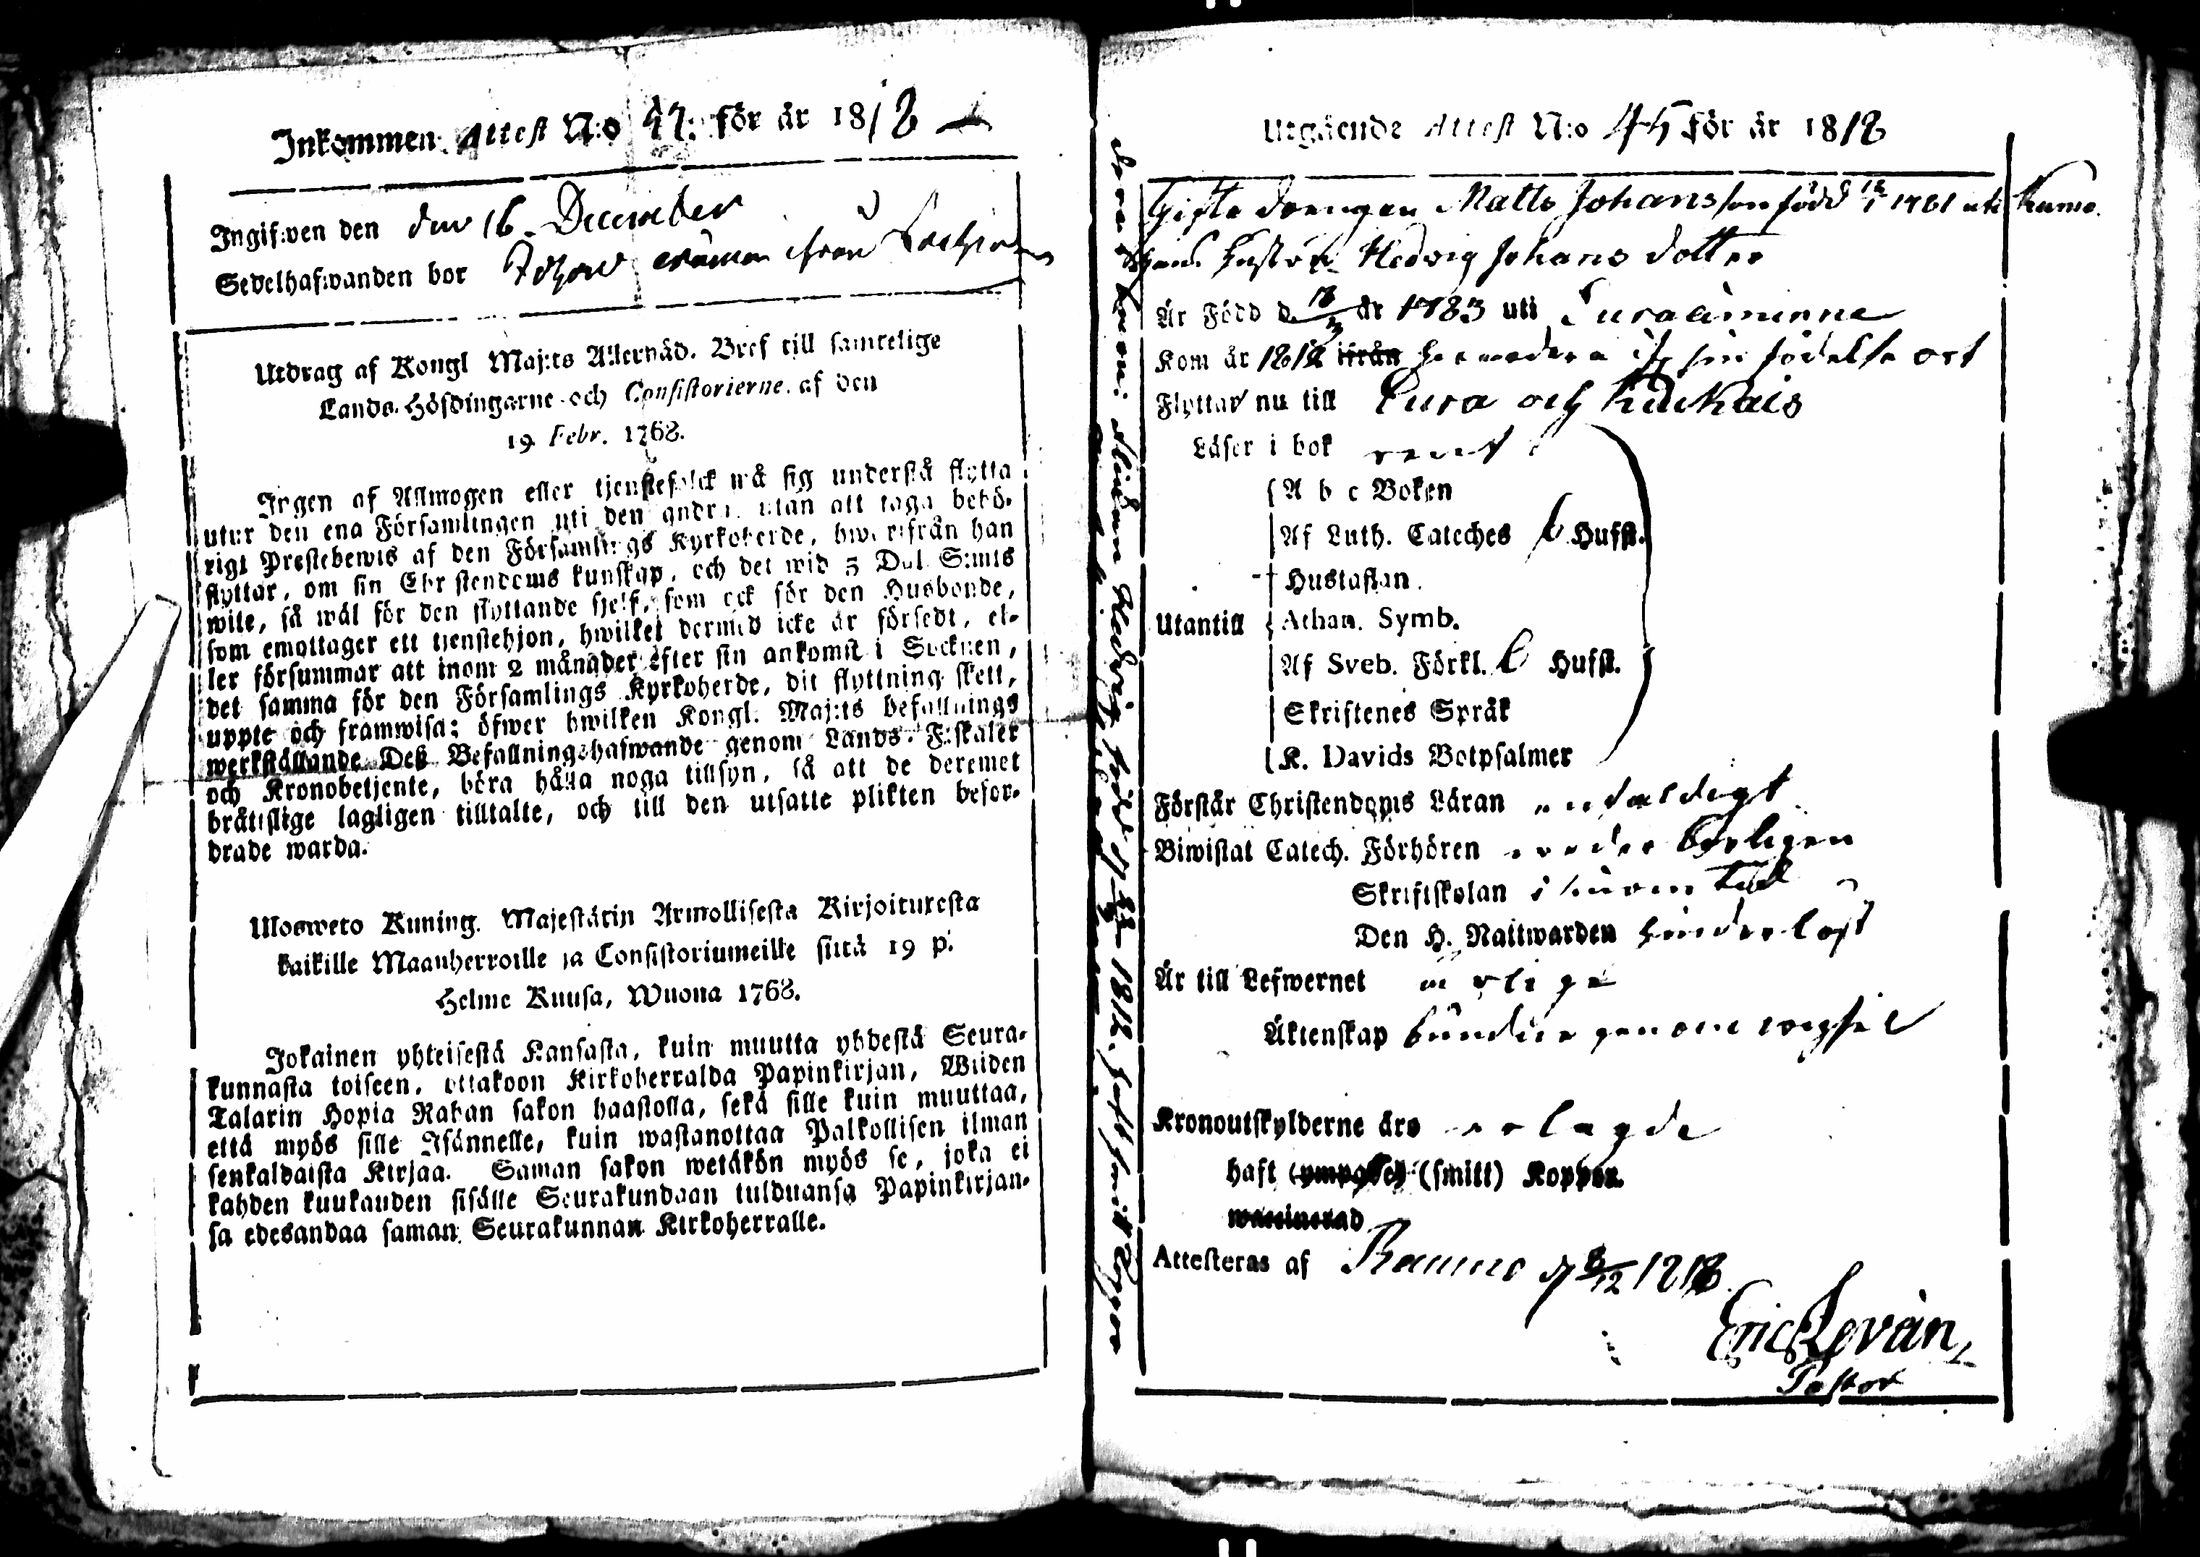 Inkommen Attest N:o 47: för år 1818
Ingifwen den den 16 December
Sedelhafwanden bor
Utdrag af Kongl Maj:ts Allernåd. Bref till samtelige
Lands-Höfdingarne och Consistorierne af den
19 Febr. 1768.
Ingen af Allmogen eller tjenstefolck må sig understå flytta
utur den ena Församlingen uti den andra utan att taga behö-
rigt Prestebewis af den Församlings Kyrkoherde, hwarifrån han
flyttar, om sin Christendoms kunskap, och det wid 5 Dal. S:mts
wite, så wäl för den flyttande sjelf, som ock för den Husbonde,
som emottager ett tjenstehjon, hwilket dermed icke är försedt, el-
ler försummar att inom 2 månader efter sin ankomst i Socknen,
det samma för den Församlings Kyrkoherde, dit flyttning skett,
uppte och framwisa; öfwer hwilken Kongl. Maj:ts befallnings
werkställande Deß Befallningshafwande genom Lands-Fiskaler
och Kronobetjente, böra hålla noga tillsyn, så att de deremot
bråttslige lagligen tilltalte, och till den utsatte plikten befor-
drade warda.
Ulosweto Kuning. Majestätin Armollisesta Kirjoituxesta
kaikille Maanherroille ja Consistoriumeille siitä 19 p.
Helme Kuusa, Wuona 1768.
Jokainen yhteisestä Kansasta, kuin muutta yhdestä Seura-
kunnasta toiseen, ottakoon Kirkoherralda Papinkirjan, Wiiden
Talarin Hopia Rahan sakon haastolla, sekä sille kuin muuttaa,
että myös sille Isännelle, kuin wastanottaa Palkollisen ilman
senkaldaista Kirjaa. Saman sakon wetäkön myös se, joka ei
kahden kuukauden sisälle Seurakundaan tulduansa Papinkirjan-
sa edesandaa saman Seurakunnan Kirkoherralle.
Utgående Attest N:o 45 för år 1818
Gifte drengen Matts Johansson född 12/1 1781 uti Kumo.
hans hustru Hedvig Johans dotter
Är Född d. är 1783 uti Euraåminne
Kom år 1812 ifrån sin födelse ort
Flyttar nu till Eura och Kiukais
Läser i bok rent
Utantill
A b c Boken
Af Luth. Cateches 6 Hufst.
Hustaflan.
Athan. Symb.
Af Sveb. Förkl. 6 Hufst.
Skriftenes Språk
K. Davids Botpsalmer
Förstår Christendoms Läran enfaldigt
Biwistat Catech. Förhören
Skriftskolan
Den H. Nattwarden
Är till Lefwernet ärlige
Äktenskap bundne genom wigsel
Kronoutskylderne äro erlagde
haft (ympade) (smitt) Koppor.
waccinerad
Attesteras af Raumo d 8/12 1818
Eric Levän,
Pastor